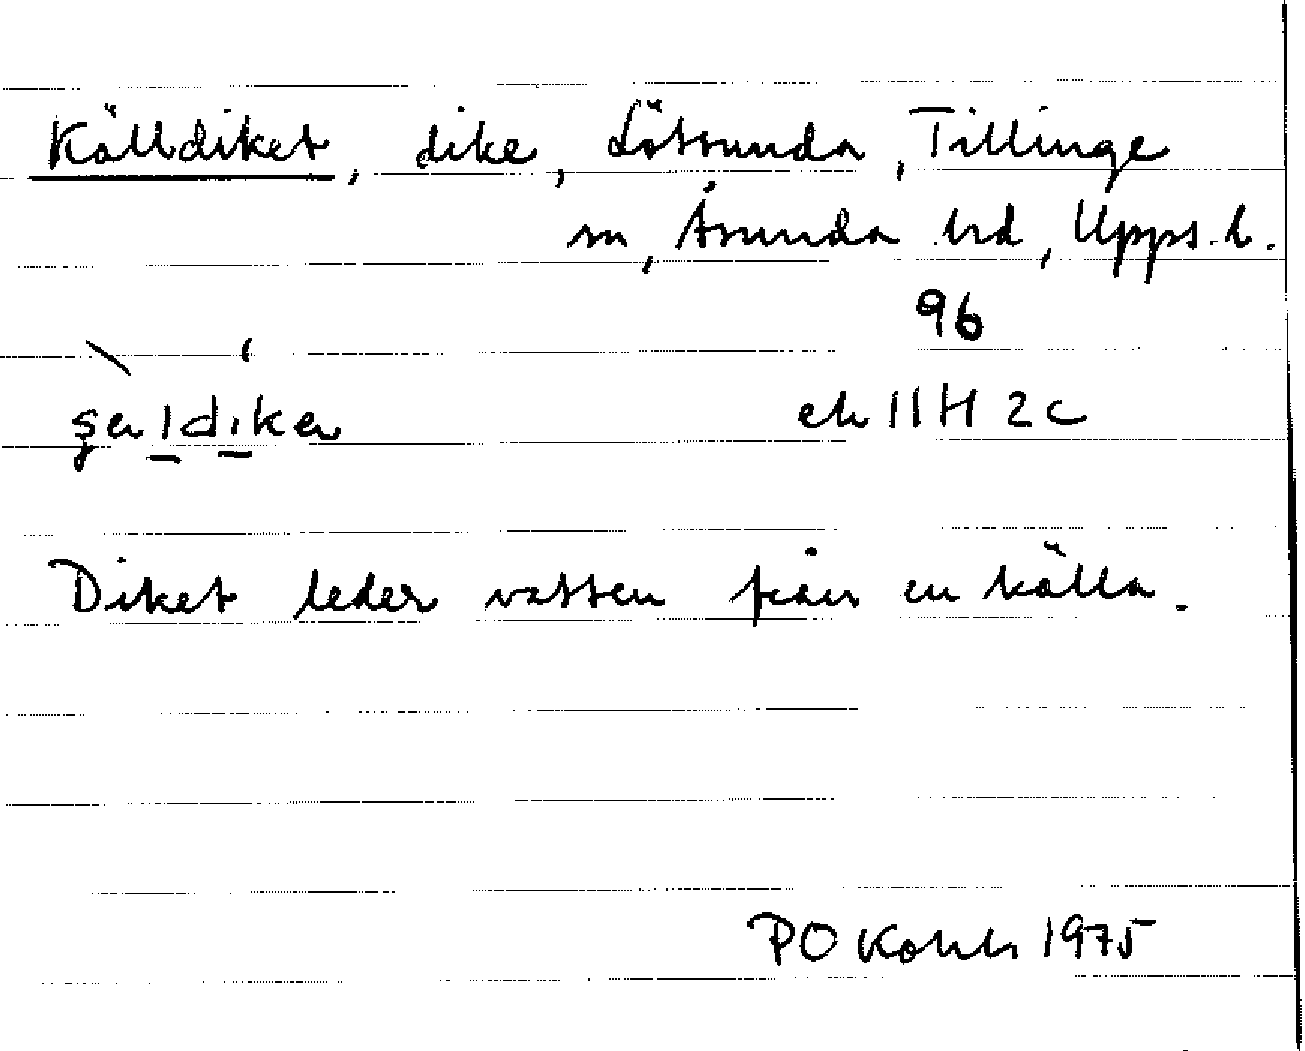 Källdiket, dike, Lötsunda, Tillinge
sn, Åsunda hd, Upps. l.
96
ek 11H 2c
Diket leder vatten från en källa.
PO 1975